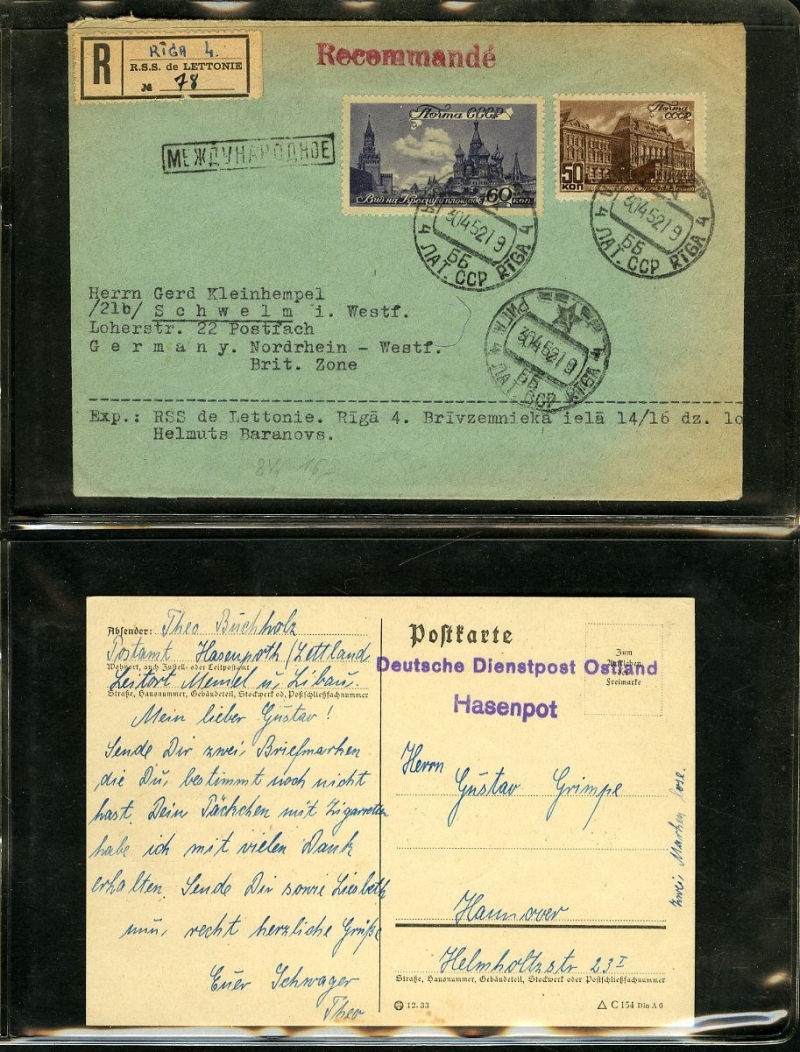 R
RĪGA 4.
R.S.S. de LETTONIE
№ 78
Recommandé
МЕЖДУНАРОДНОЕ
Почта СССР
60 коп.
Вид на Красную площадь
Почта СССР
50 КОП
30 4 52 19
ББ
4 ЛАТ. ССР RĪGA 4
30 4 52 19
ББ
4 ЛАТ. ССР RĪGA 4
РИГА 4 ЛАТ. ССР RĪGA 4
30 4 52 19
ББ
Herrn Gerd Kleinhempel
/21b/ S c h w e l m i. Westf.
Loherstr. 22 Postfach
G e r m a n y. Nordrhein - Westf.
Brit. Zone
Exp.: RSS de Lettonie. Rīgā 4. Brīvzemnieka ielā 14/16 dz. lo
Helmuts Baranovs.
Absender: Theo Buchholz
Postamt Hasenpoth/Lettland
Wohnort, auch Zustell- oder Leitpostamt
Leitort Memel u. Libau.
Straße, Hausnummer, Gebäudeteil, Stockwerk od. Postschließfachnummer
Mein lieber Gustav!
Sende Dir zwei Briefmarken
die Du bestimmt noch nicht
hast. Dein Päckchen mit Zigaretten
habe ich mit vielen Dank
erhalten. Sende Dir sowie Liesbeth
nun, recht herzliche Grüße
Euer Schwager
Theo
Postkarte
Zum
Aufkleben
der
Freimarke
Deutsche Dienstpost Ostland
Hasenpot
Herrn
Gustav Grimpe
Hannover
Helmholtzstr. 23 I
Straße, Hausnummer, Gebäudeteil, Stockwerk oder Postschließfachnummer
zwei Marken lose.
12.33
C 154 Din A 6